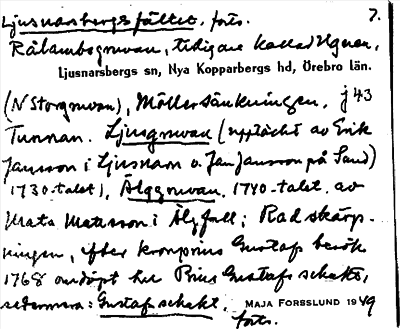 Ljusnarsbergsfältet. forts. 7.
Rålambsgruvan, tidigare kallad
Ljusnarsbergs sn, Nya Kopparbergs hd, Örebro län.
(N Storgruvan), Möllersänkningen, j 43
Tunnan. Ljusgruvan (upptäckt av Erik
Jansson i Ljusnarn o. Jan Jansson på Sand)
1730-talet), Älggruvan. 1740-talet. av
Mats Matsson i Älgfall; Radskärp-
ningen, efter kronprins Gustafs besök
1768 omdöpt till Prins Gustafs schakt,
sedermera: Gustafsschakt. MAJA FORSSLUND 1949
forts.